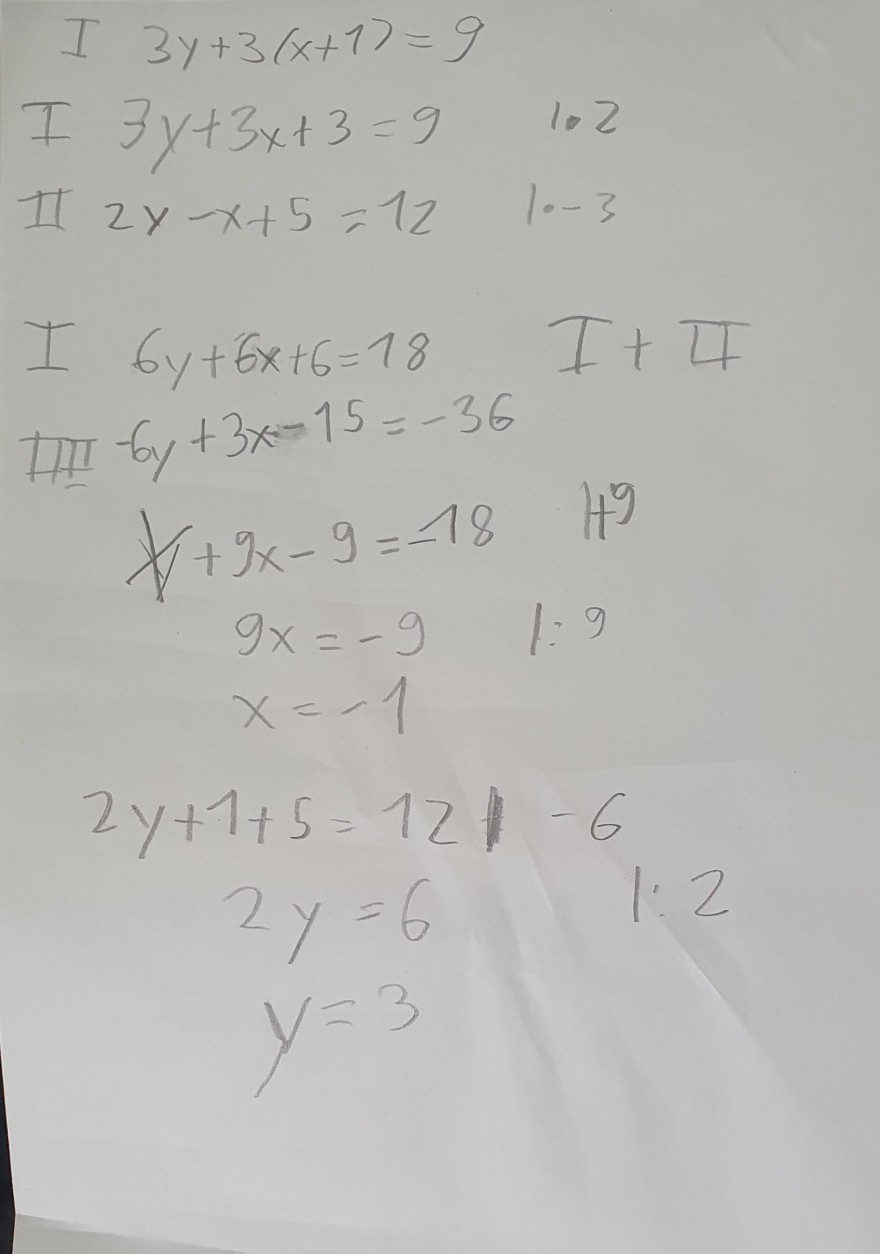 I 3y+3(x+1)=9
I 3y+3x+3=9 |•2
II 2y-x+5=12 |•-3
I 6y+6x+6=18 I+II
III -6y+3x-15=-36
+9x-9=-18 |+9
9x=-9 |:9
x=-1
2y+1+5=12 | -6
2y=6 |:2
y=3